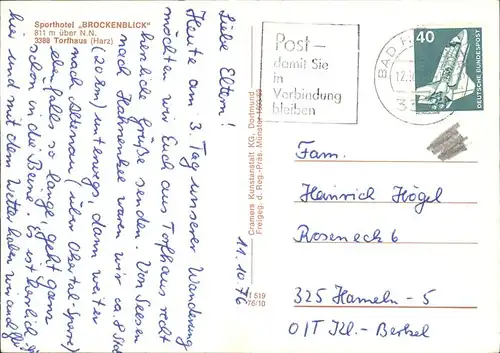 Sporthotel „BROCKENBLICK“
811 m über N.N.
3388 Torfhaus (Harz)
11.10.76
Liebe Eltern!
Heute am 3. Tag unserer Wanderung
möchten wir Euch aus Torfhaus recht
herzliche Grüße senden. Von Seesen
nach Hahnenklee waren wir ca. 8 Std
(20 km) unterwegs, dann weiter
nach Altenau (über Okertal-Sperre)
ebenfalls so lange, geht ganz
schön in die Beine. Es ist herrlich
hier und mit dem Wetter haben wir auch
Cramers Kunstanstalt KG, Dortmund
Freigeg. d. Reg.-Präs. Münster
Post –
damit Sie
in
Verbindung
bleiben
BAD
40
DEUTSCHE BUNDESPOST
Fam.
Heinrich Högel
Roseneck 6
325 Hameln - 5
O/T Kl.- Berkel